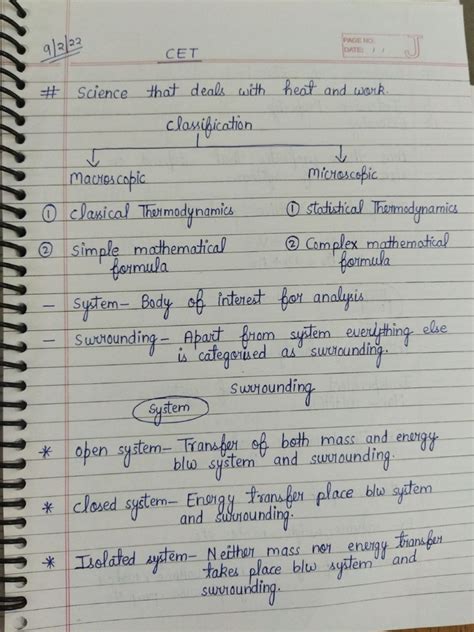 9/2/22
CET
PAGE NO:
DATE: / /
J
# Science that deals with heat and work.
Classification
Macroscopic Microscopic
① Classical Thermodynamics ① Statistical Thermodynamics
② Simple mathematical ② Complex mathematical
formula formula
- System- Body of interest for analysis
- Surrounding - Apart from system everything else
is categorised as surrounding.
Surrounding
System
* Open system- Transfer of both mass and energy
b/w system and surrounding.
* Closed system- Energy transfer place b/w system
and surrounding.
* Isolated system- Neither mass nor energy transfer
takes place b/w system and
surrounding.